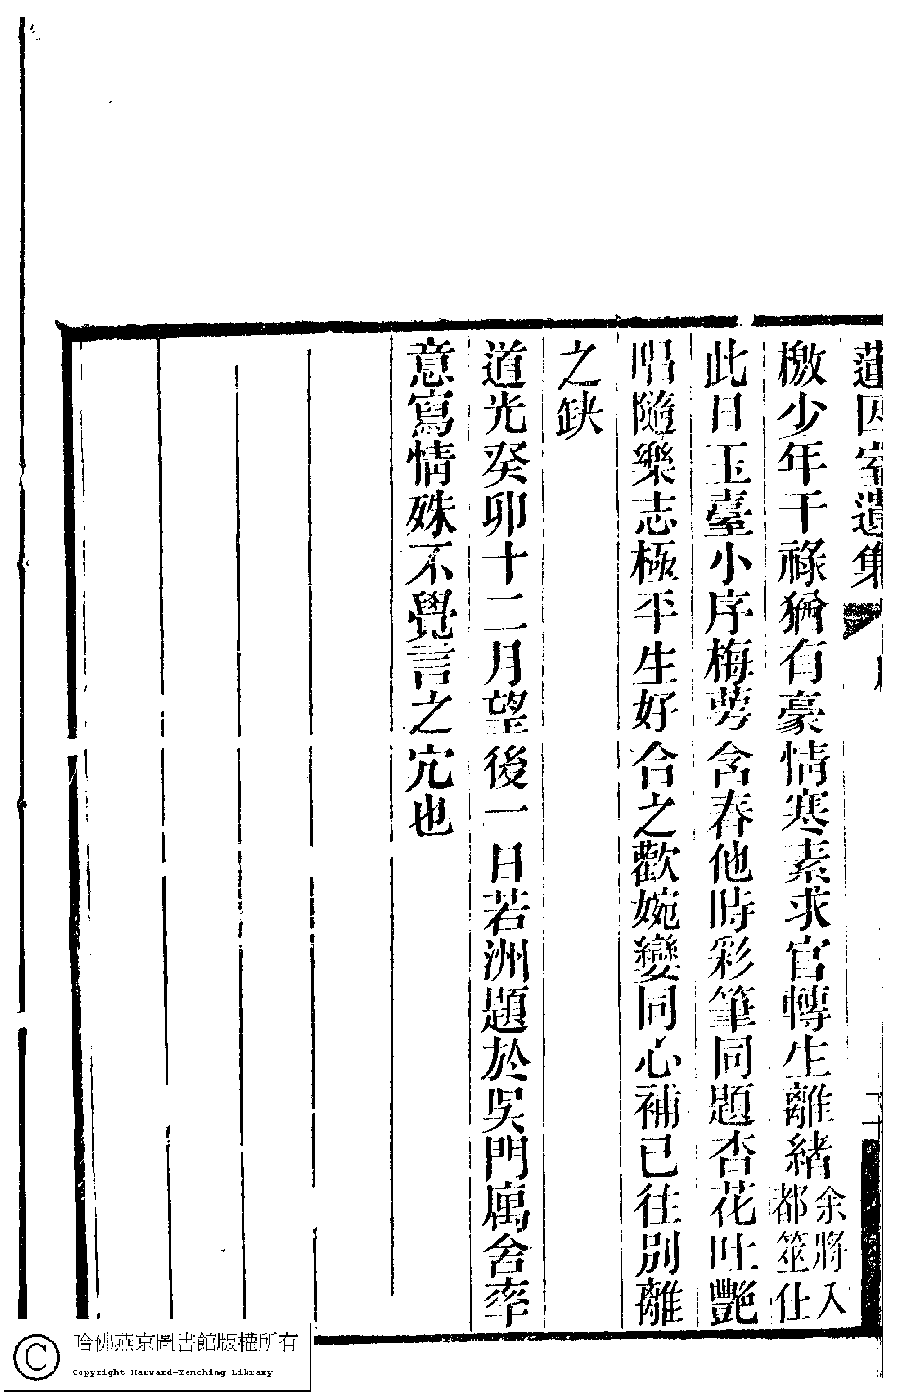 蓮因室遺集
檄少年干祿猶有豪情寒素求官轉生離緒余將入都筮仕
此日玉臺小序梅萼含春他時彩筆同題杏花吐艷
唱隨樂志極平生好合之歡婉孌同心補已往別離
之缺
道光癸卯十二月望後一日若洲題於吳門寓舍率
意寫情殊不覺言之宂也
哈佛燕京圖書館版權所有
Copyright Harvard-Yenching Library